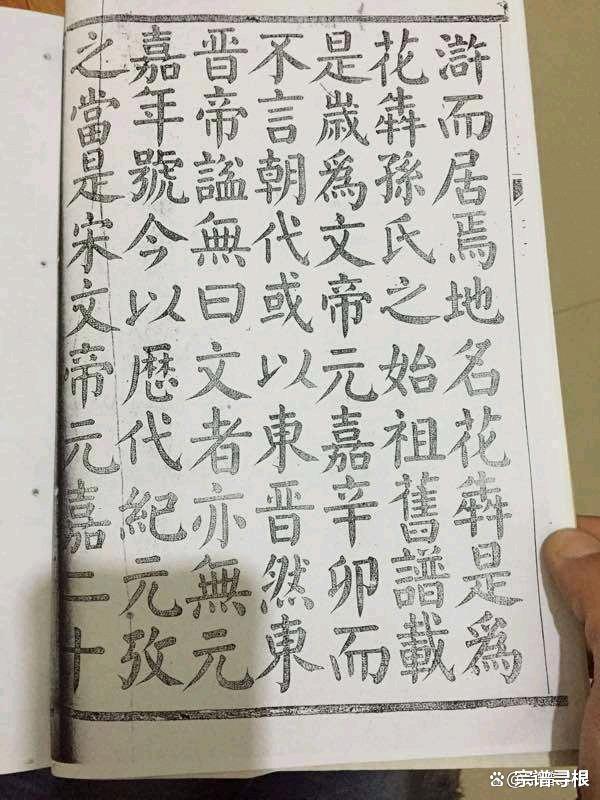 滸而居焉地名花犇是爲
花犇孫氏之始祖舊譜載
是嵗爲文帝元嘉辛卯而
不言朝代或以東晉然東
晋帝謚無曰文者亦無元
嘉年號今以歷代紀元攷
之當是宋文帝元嘉二十
宗谱寻根